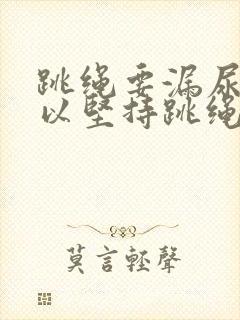 跳绳要漏尿
以坚持跳绳
莫言轻聲